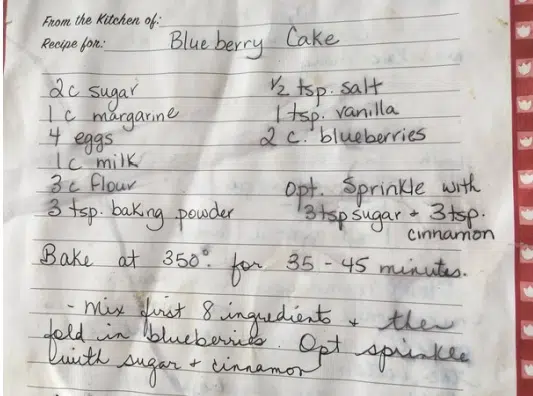 From the Kitchen of:
Recipe for: Blueberry Cake
2 c sugar
1 c margarine
4 eggs
1 c milk
3 c flour
3 tsp. baking powder
1/2 tsp. salt
1 tsp. vanilla
2 c. blueberries
Opt. Sprinkle with
3 tsp sugar + 3 tsp.
cinnamon
Bake at 350° for 35 - 45 minutes.
- Mix first 8 ingredients + then
fold in blueberries. Opt sprinkle
with sugar + cinnamon